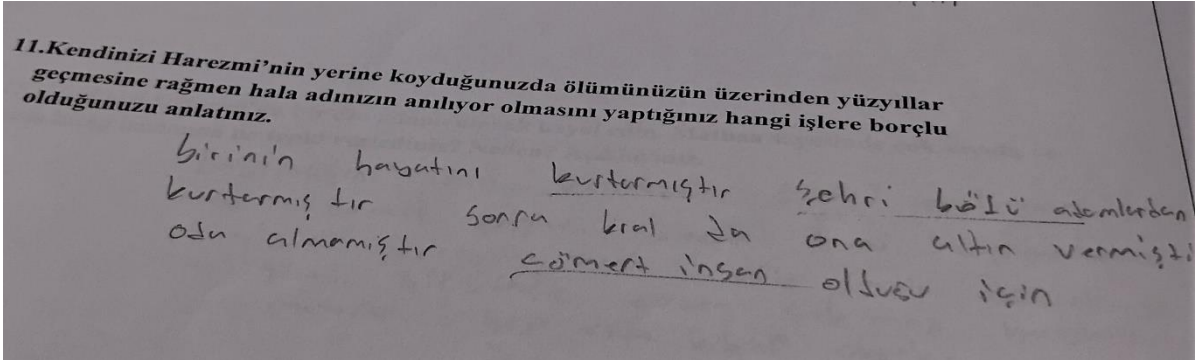 11.Kendinizi Harezmi'nin yerine koyduğunuzda ölümünüzün üzerinden yüzyıllar
geçmesine rağmen hala adınızın anılıyor olmasını yaptığınız hangi işlere borçlu
olduğunuzu anlatınız.
birinin hayatını kurtarmıştır şehri bölü adamlardan
kurtarmış tır sonra kral da ona altın vermişti
oda almamıştır cömert insan olduğu için